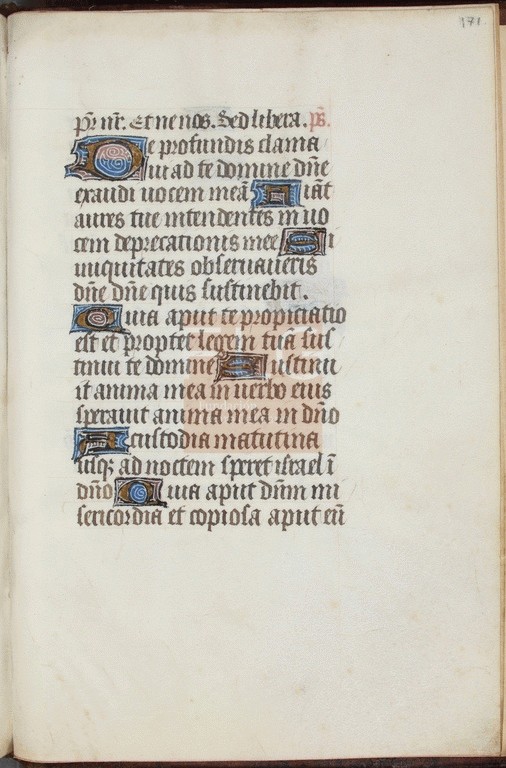 171
pr̄ nr̄. Et ne nos. Sed libera. ps̄.
De profundis clama
ui ad te domine dn̄e
exaudi uocem meā Fiāt
aures tue intendentes in uo
cem deprecationis mee Si
iniquitates obseruaueris
dn̄e dn̄e quis sustinebit.
Quia aput te propiciatio
est et propter legem tuā sus
tinui te domine Sustinu
it anima mea in uerbo eius
sperauit anima mea in dn̄o
A custodia matutina
usqꝫ ad noctem speret israel ī
dn̄o Quia aput dn̄m mi
sericordia et copiosa aput eū